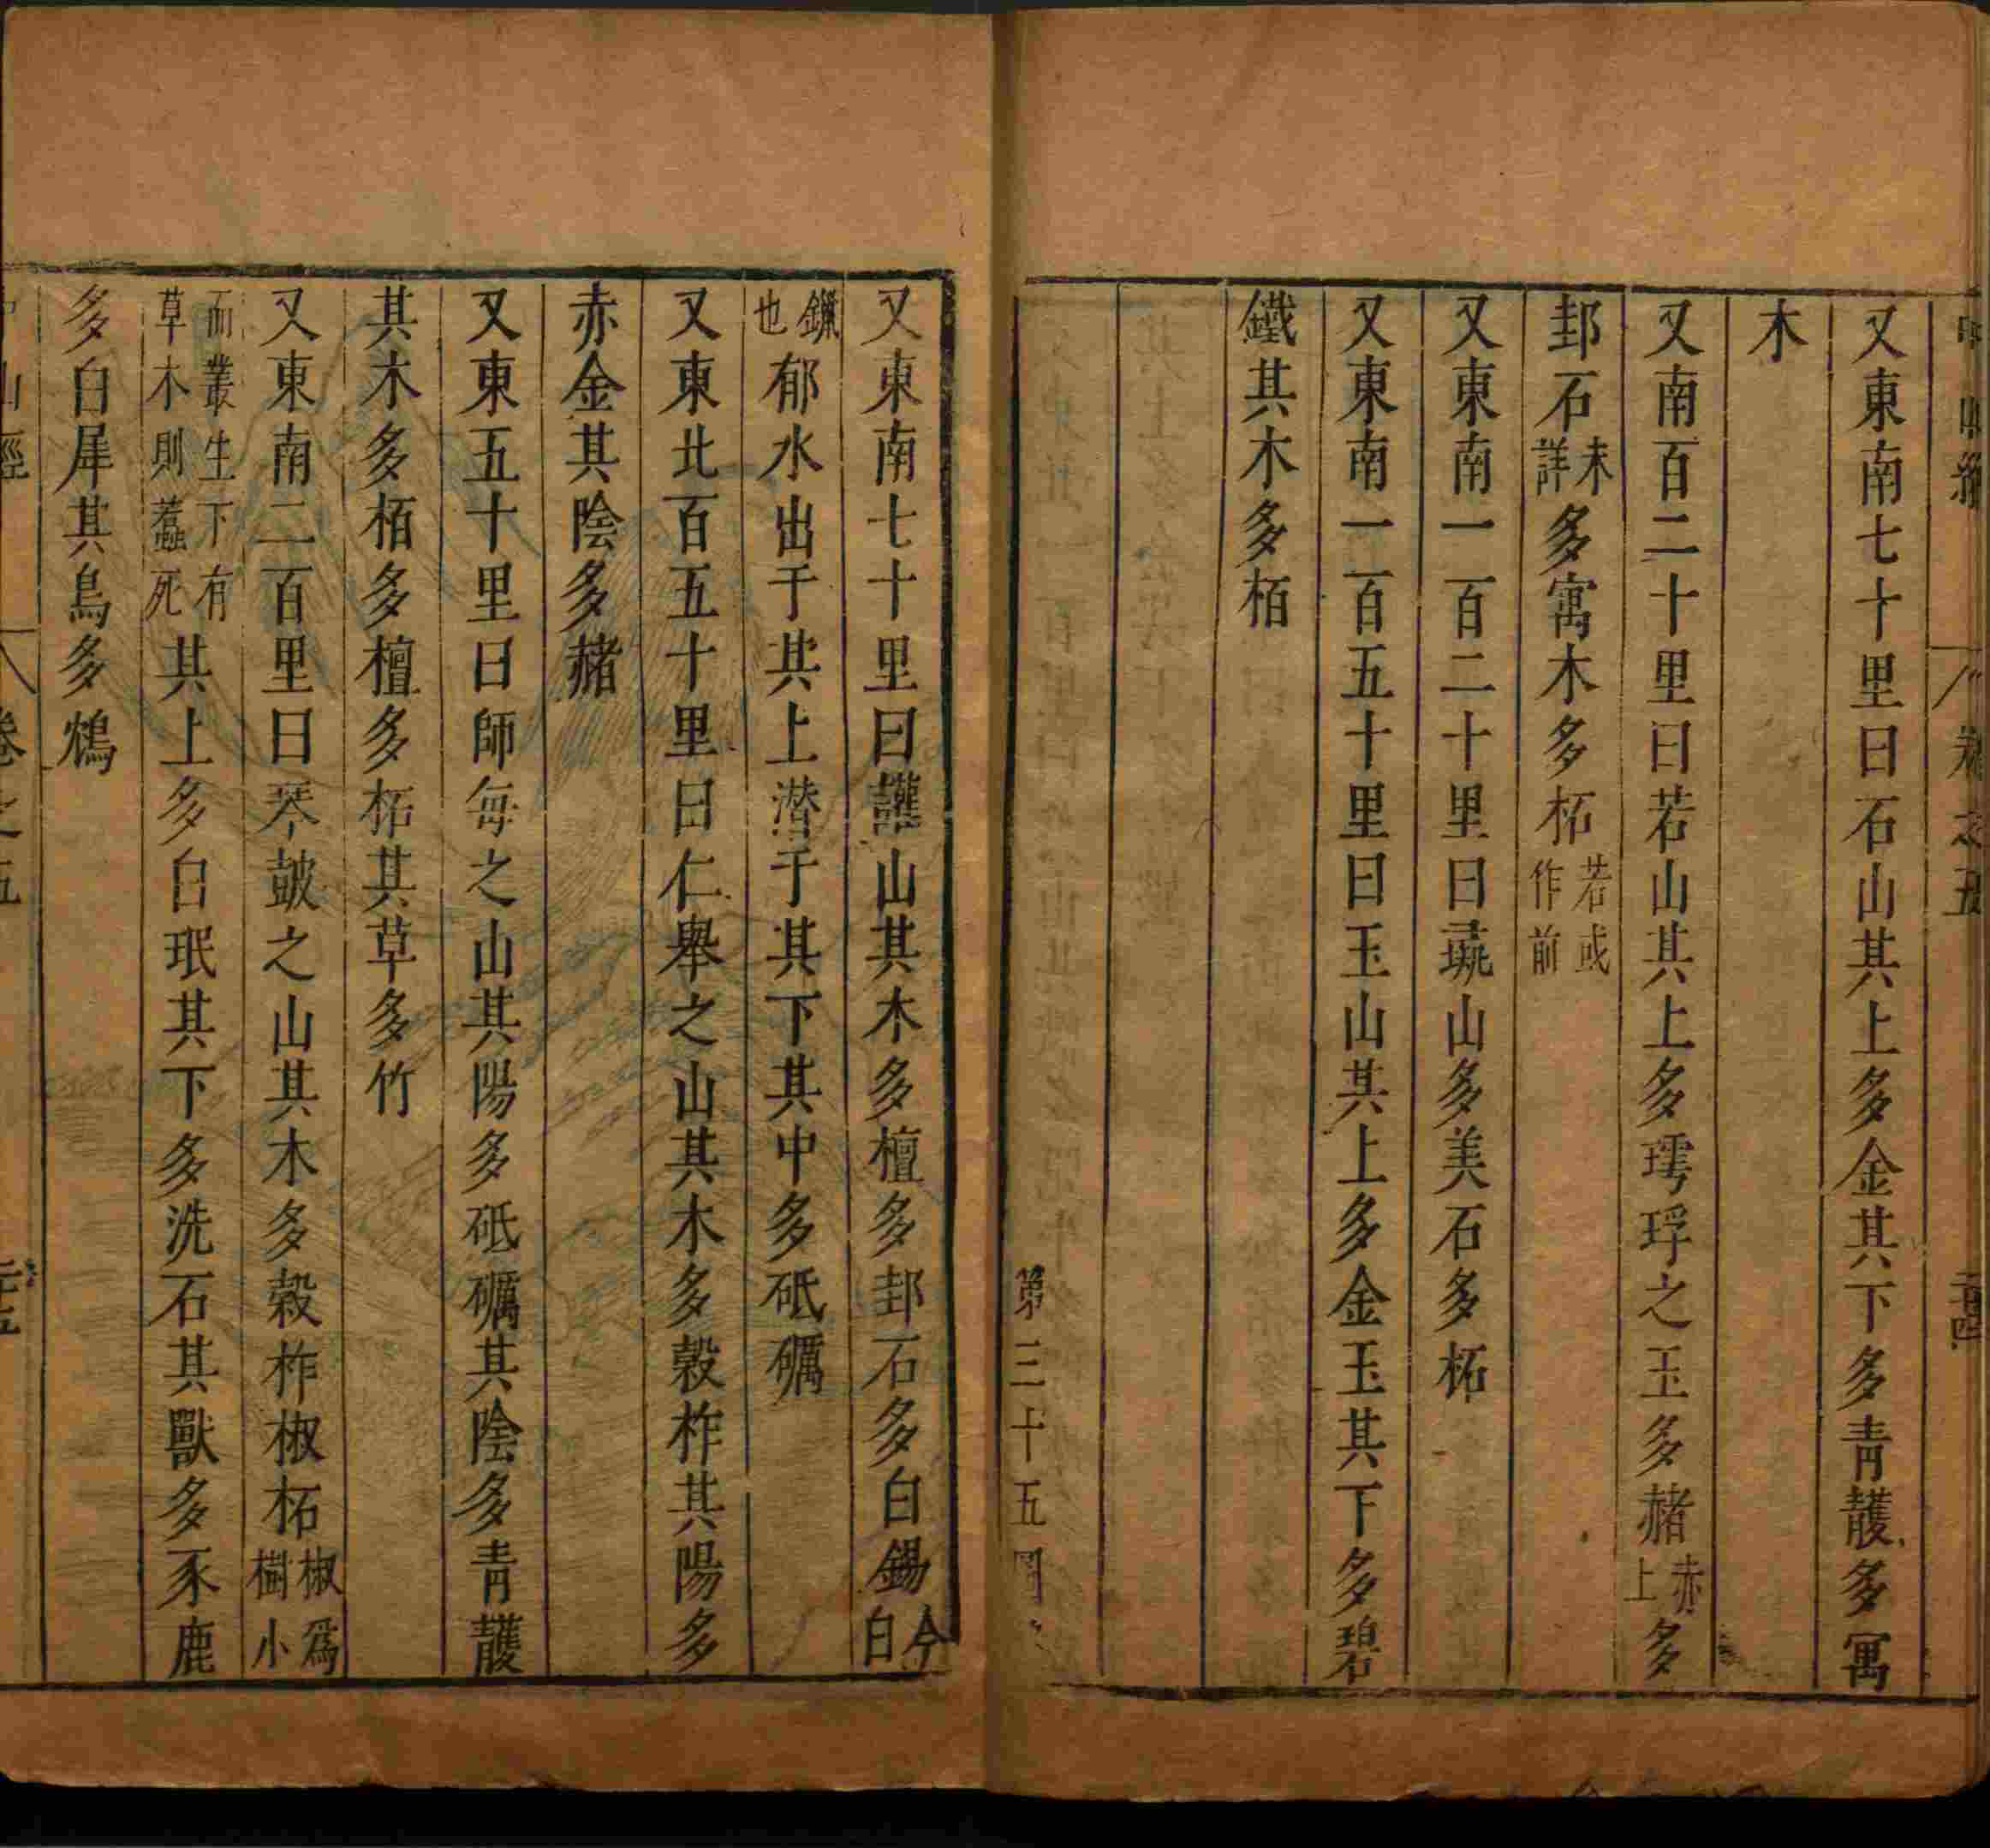 中山經 卷之五 二十四
又東南七十里曰石山其上多金其下多青雘多寓
木
又南百二十里曰若山其上多㻬琈之玉多赭赤上多
邽石未詳多寓木多柘若或作前
又東南一百二十里曰彘山多美石多柘
又東南一百五十里曰玉山其上多金玉其下多碧
鐵其木多栢
第三十五
又東南七十里曰讙山其木多檀多邽石多白錫今白
鑞也郁水出于其上潜于其下其中多砥礪
又東北百五十里曰仁舉之山其木多榖柞其陽多
赤金其陰多赭
又東五十里曰師每之山其陽多砥礪其陰多青雘
其木多栢多檀多柘其草多竹
又東南二百里曰琴鼓之山其木多榖柞椒柘椒爲樹小
而叢生下有草木則蠚死其上多白珉其下多洗石其獸多豕鹿
多白犀其鳥多鴆
山經 卷之五